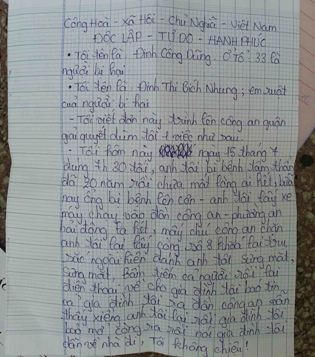 Công Hoà - Xã Hội - Chủ Nghĩa - Việt Nam
ĐỘC LẬP - TỰ DO - HẠNH PHÚC
• Tôi tên là Đinh Công Dũng. Ở Tổ: 33 là
người bị hại
• Tôi tên là: Đinh Thị Bích Nhung; em ruột
của người bị hại
- Tôi viết đơn này trình lên công an quận
giải quyết dùm tôi 1 việc như sau.
- Tối hôm này ngày 15 tháng 7
đúng 7h 30 tối, anh tôi bị bệnh tâm thần
đã 20 năm rồi chưa mất lòng ai hết, bữa
nay ông bị bệnh lên cơn - anh tôi lấy xe
máy chạy vào đồn công an - phường an
hải đông la hét, mấy chú công an chặn
anh tôi lại lấy còng số 8 khóa lại trụ
sắc ngoài hiên đánh anh tôi sưng mắt,
sưng mặt, bầm tiếm cả người rồi lại
điện thoại về cho gia đình tôi báo tin
cả gia đình tôi ra đồn công an
thấy xiềng anh tôi lại rồi gia đình tôi
bảo mở còng ra rồi nói gia đình tôi
dẫn về nhà đi, Tôi không chiệu!